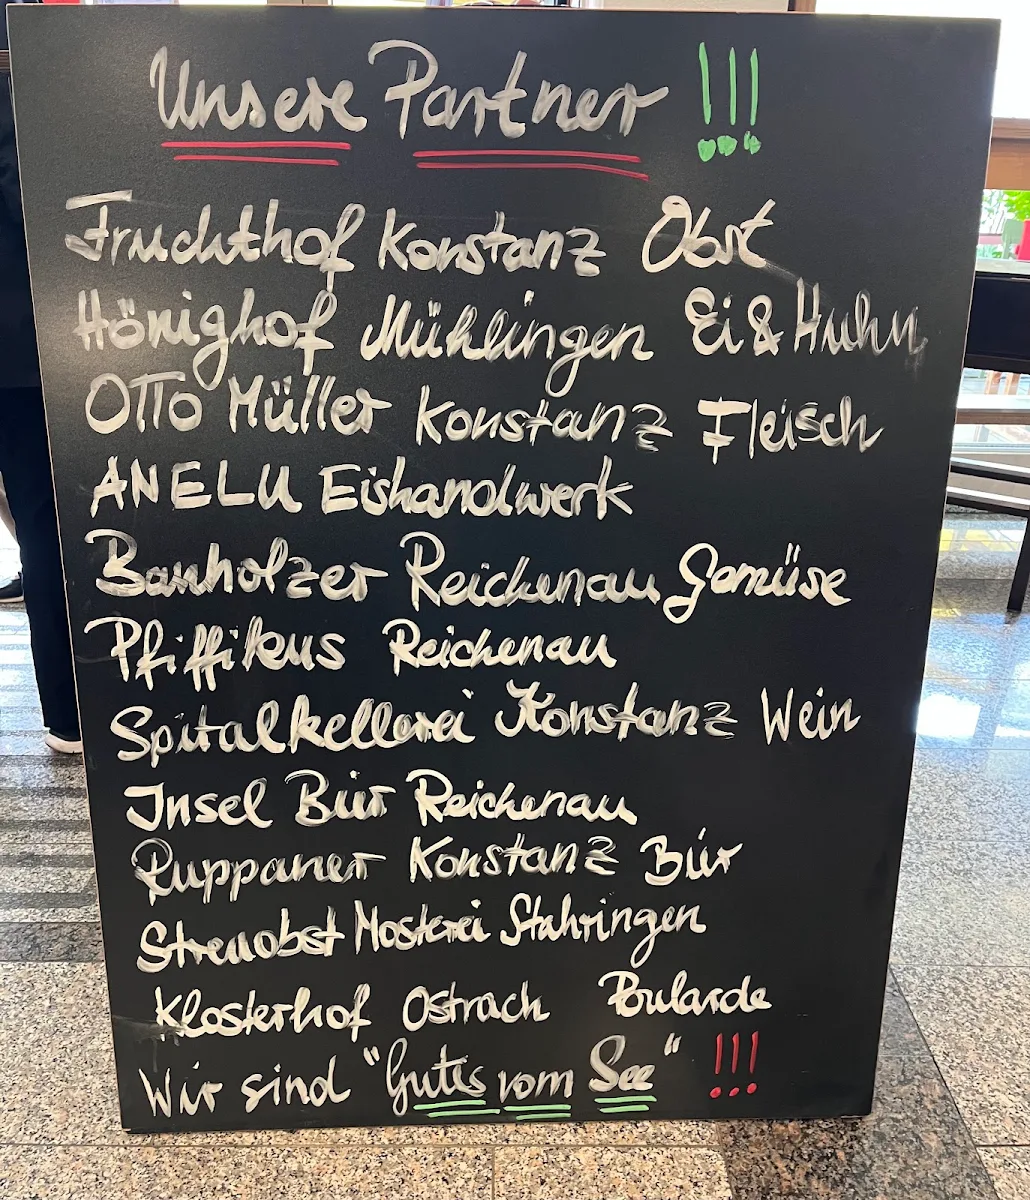 Unsere Partner !!!
Fruchthof Konstanz Obst
Hönighof Mühlingen Ei & Huhn
OTTO Müller Konstanz Fleisch
ANELU Eishandwerk
Banholzer Reichenau Gemüse
Pfiffikus Reichenau
Spitalkellerei Konstanz Wein
Insel Bier Reichenau
Ruppaner Konstanz Bier
Streuobst Mosterei Stahringen
Klosterhof Ostrach Poularde
Wir sind "Gutes vom See" !!!